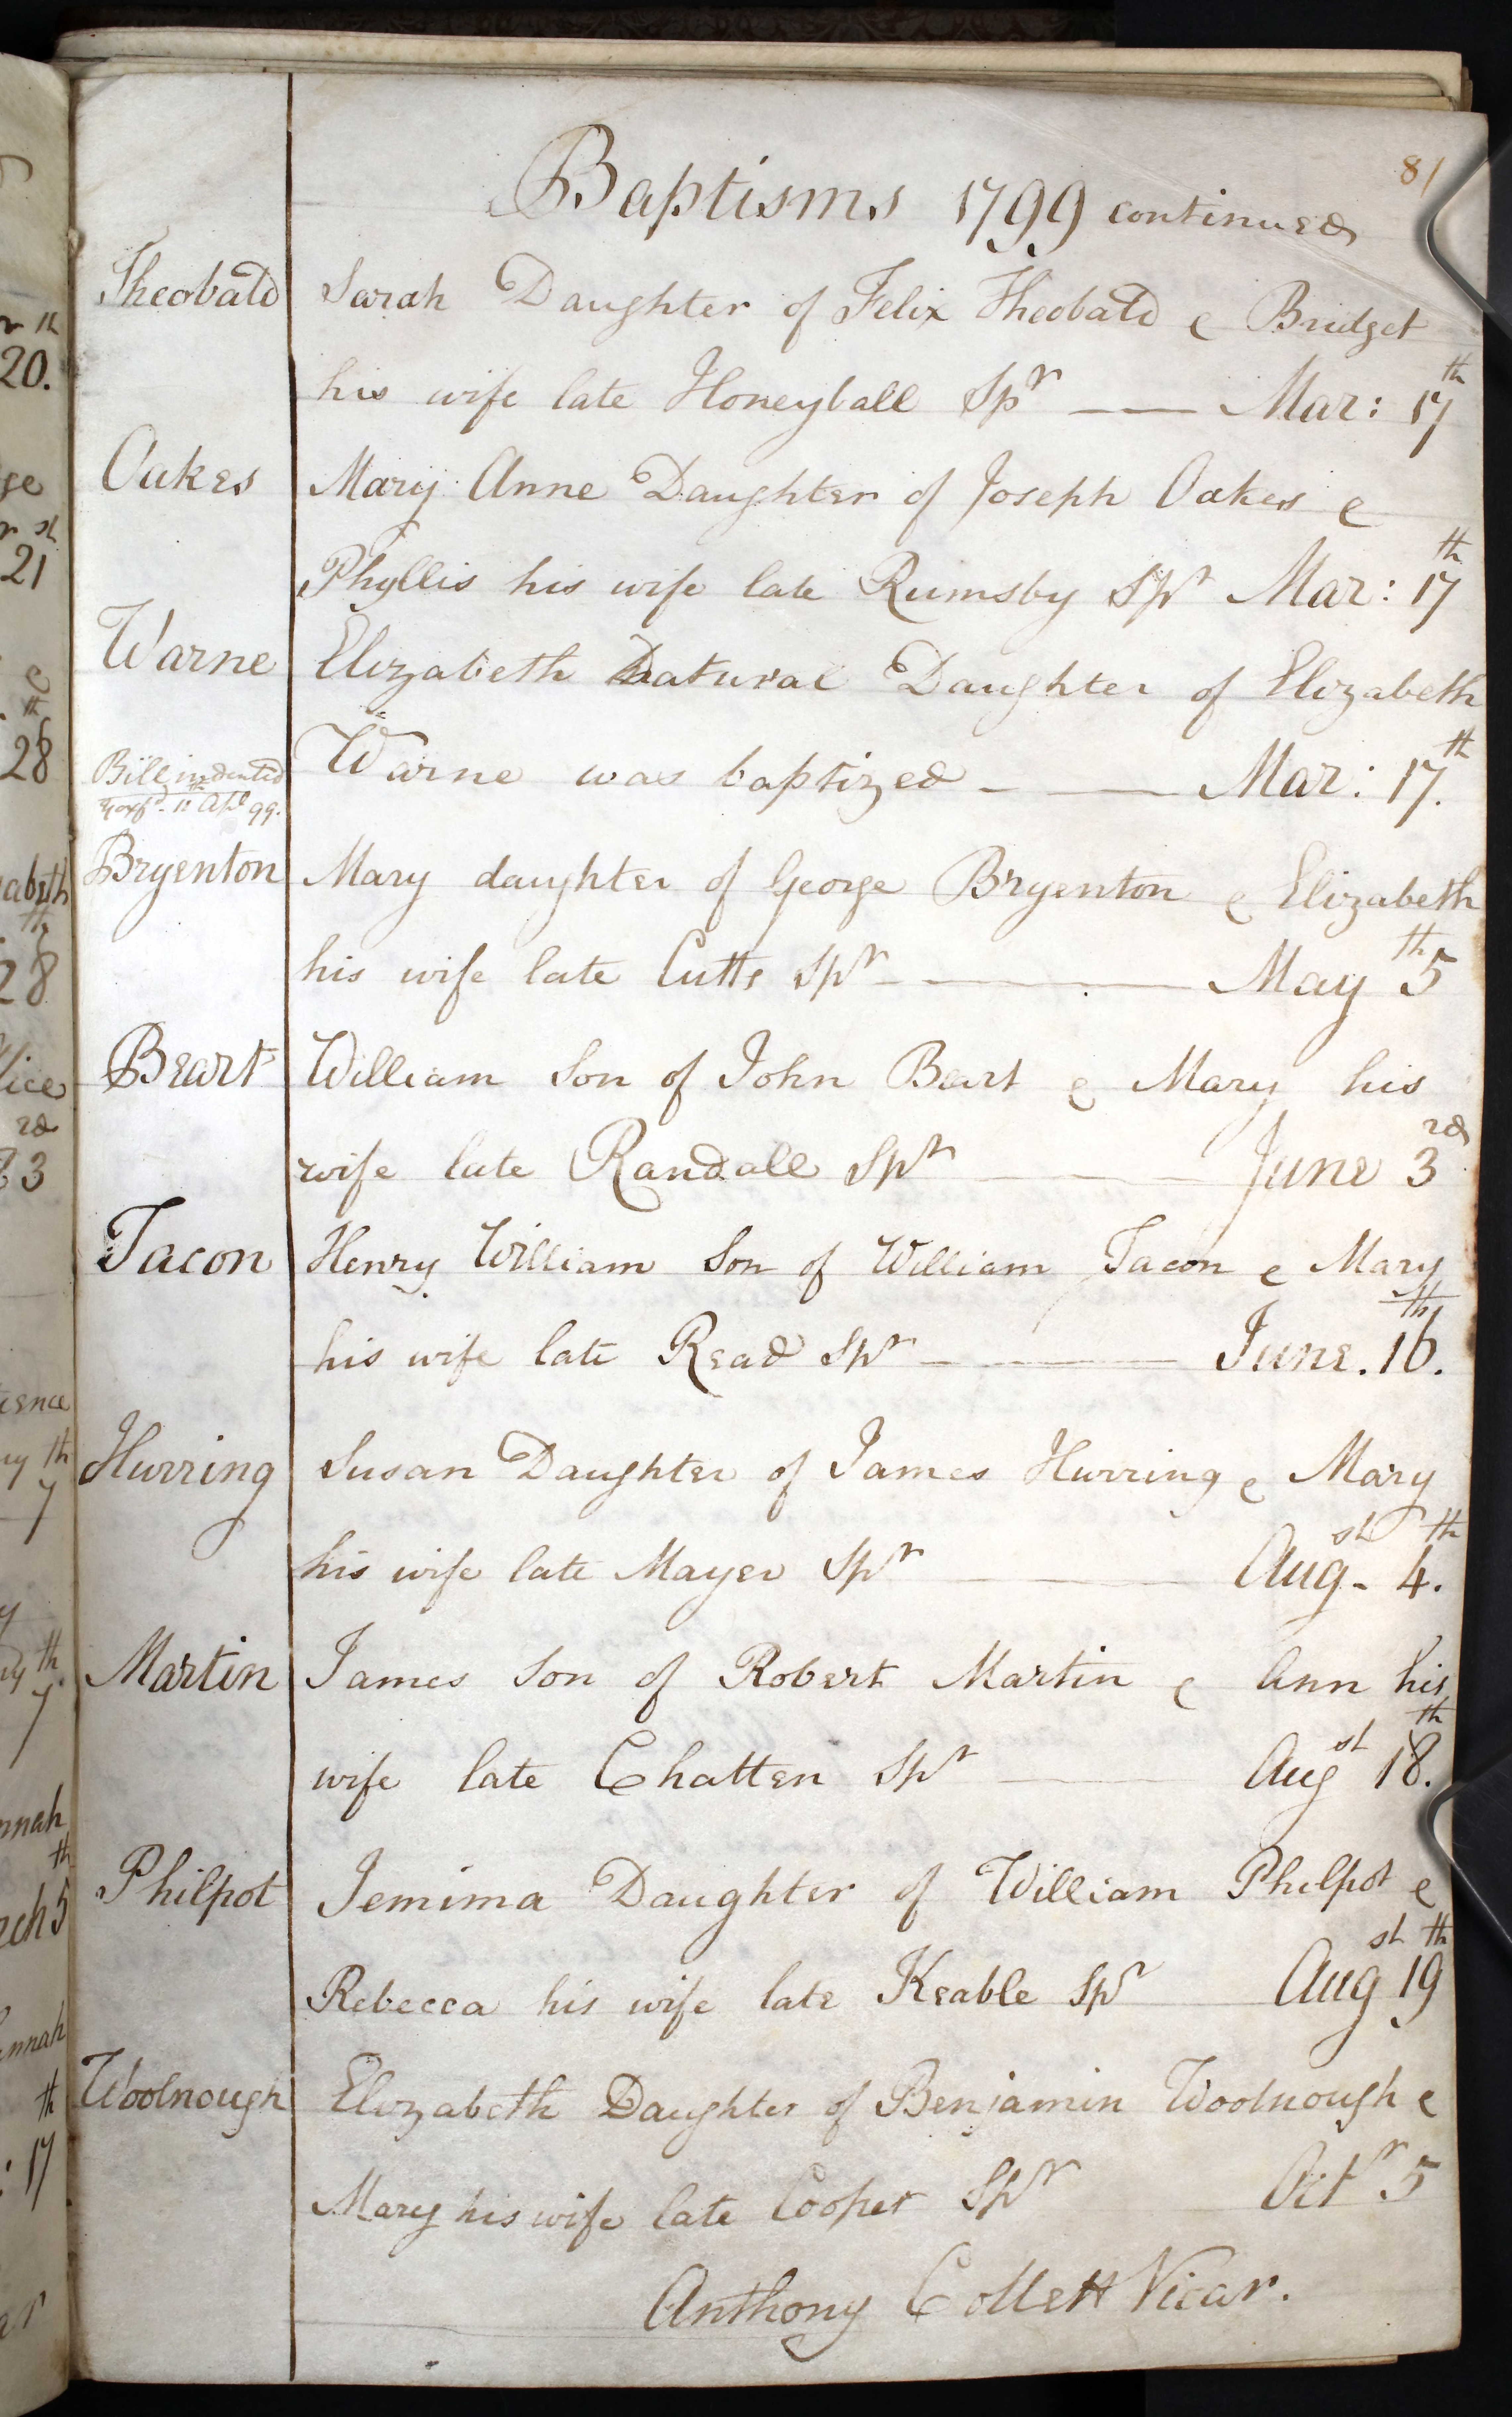 81
Baptisms 1799 continued
Theobald Sarah Daughter of Felix Theobald & Bridget
his wife late Honeyball Spr Mar: 17th
Oakes Mary Anne Daughter of Joseph Oakes &
Phyllis his wife late Rumsby Spr Mar: 17th
Warne Elizabeth natural Daughter of Elizabeth
Warne was baptized Mar: 17th.
Bill indented
Apl 99.
Bryenton Mary daughter of George Bryenton & Elizabeth
his wife late Cutts Spr May 5th
Beart William Son of John Beart & Mary his
wife late Randall Spr June 3rd
Tacon Henry William Son of William Tacon & Mary
his wife late Read Spr June. 16th.
Hurring Susan Daughter of James Hurring & Mary
his wife late Mayer Spr Augst 4th.
Martin James Son of Robert Martin & Ann his
wife late Chatten Spr Augst 18th.
Philpot Jemima Daughter of William Philpot &
Rebecca his wife late Keable Spr Augst 19th
Woolnough Elizabeth Daughter of Benjamin Woolnough &
Mary his wife late Cooper Spr Octr 5
Anthony Collett Vicar.